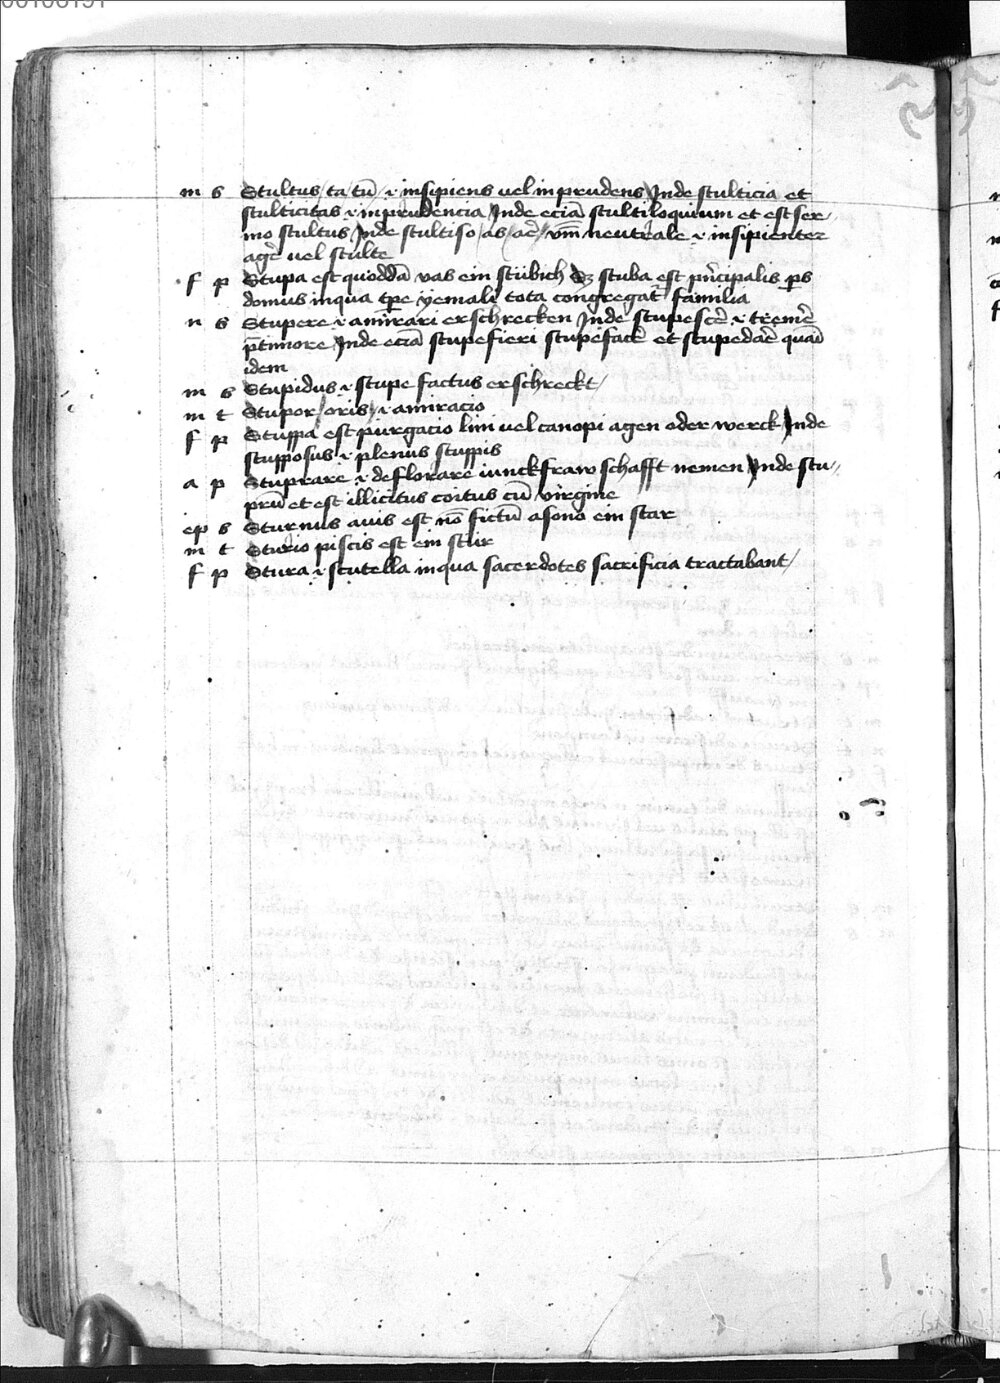 00100191
m s Stultus / ta / tū / ꝛ insipiens vel inprudens Jnde stulticia et
stulticitas ꝛ inprudencia Jnde eciā stultiloquium et est ser-
mo stultus Jnde stultiso / as / aꝛē / vm̄ neutrale ꝛ insipienter
ager̄ vel stulte
f p Stupa est quoddā vas ein stübich Sz stuba est pn̄cipalis ꝑs
domus inqua tꝑe yemali tota congregat̄ familia
n s Stupere ꝛ amīrari erschrecken Jnde stupescer̄ ꝛ tremer̄
p̄timore Jnde eciā stupefieri stupefacer̄ et stupedacer̄ quasi
idem
m s Stupidus ꝛ stupefactus erschreckt /
m t Stupor / oris / ꝛ amiracio
f p Stuppa est purgacio lini vel canopi agen oder werck Jnde
stupposus ꝛ plenus stuppis
a p Stuprare ꝛ deflorare iunckfraw schafft nemen Jnde stu-
prū et est illicitus coitus cū virgine
ep s Sturnus auis est nō fictū asono ein star
m t Sturio piscis est ein stür
f p Stura ꝛ scutella inqua sacerdotes sacrificia tractabant /